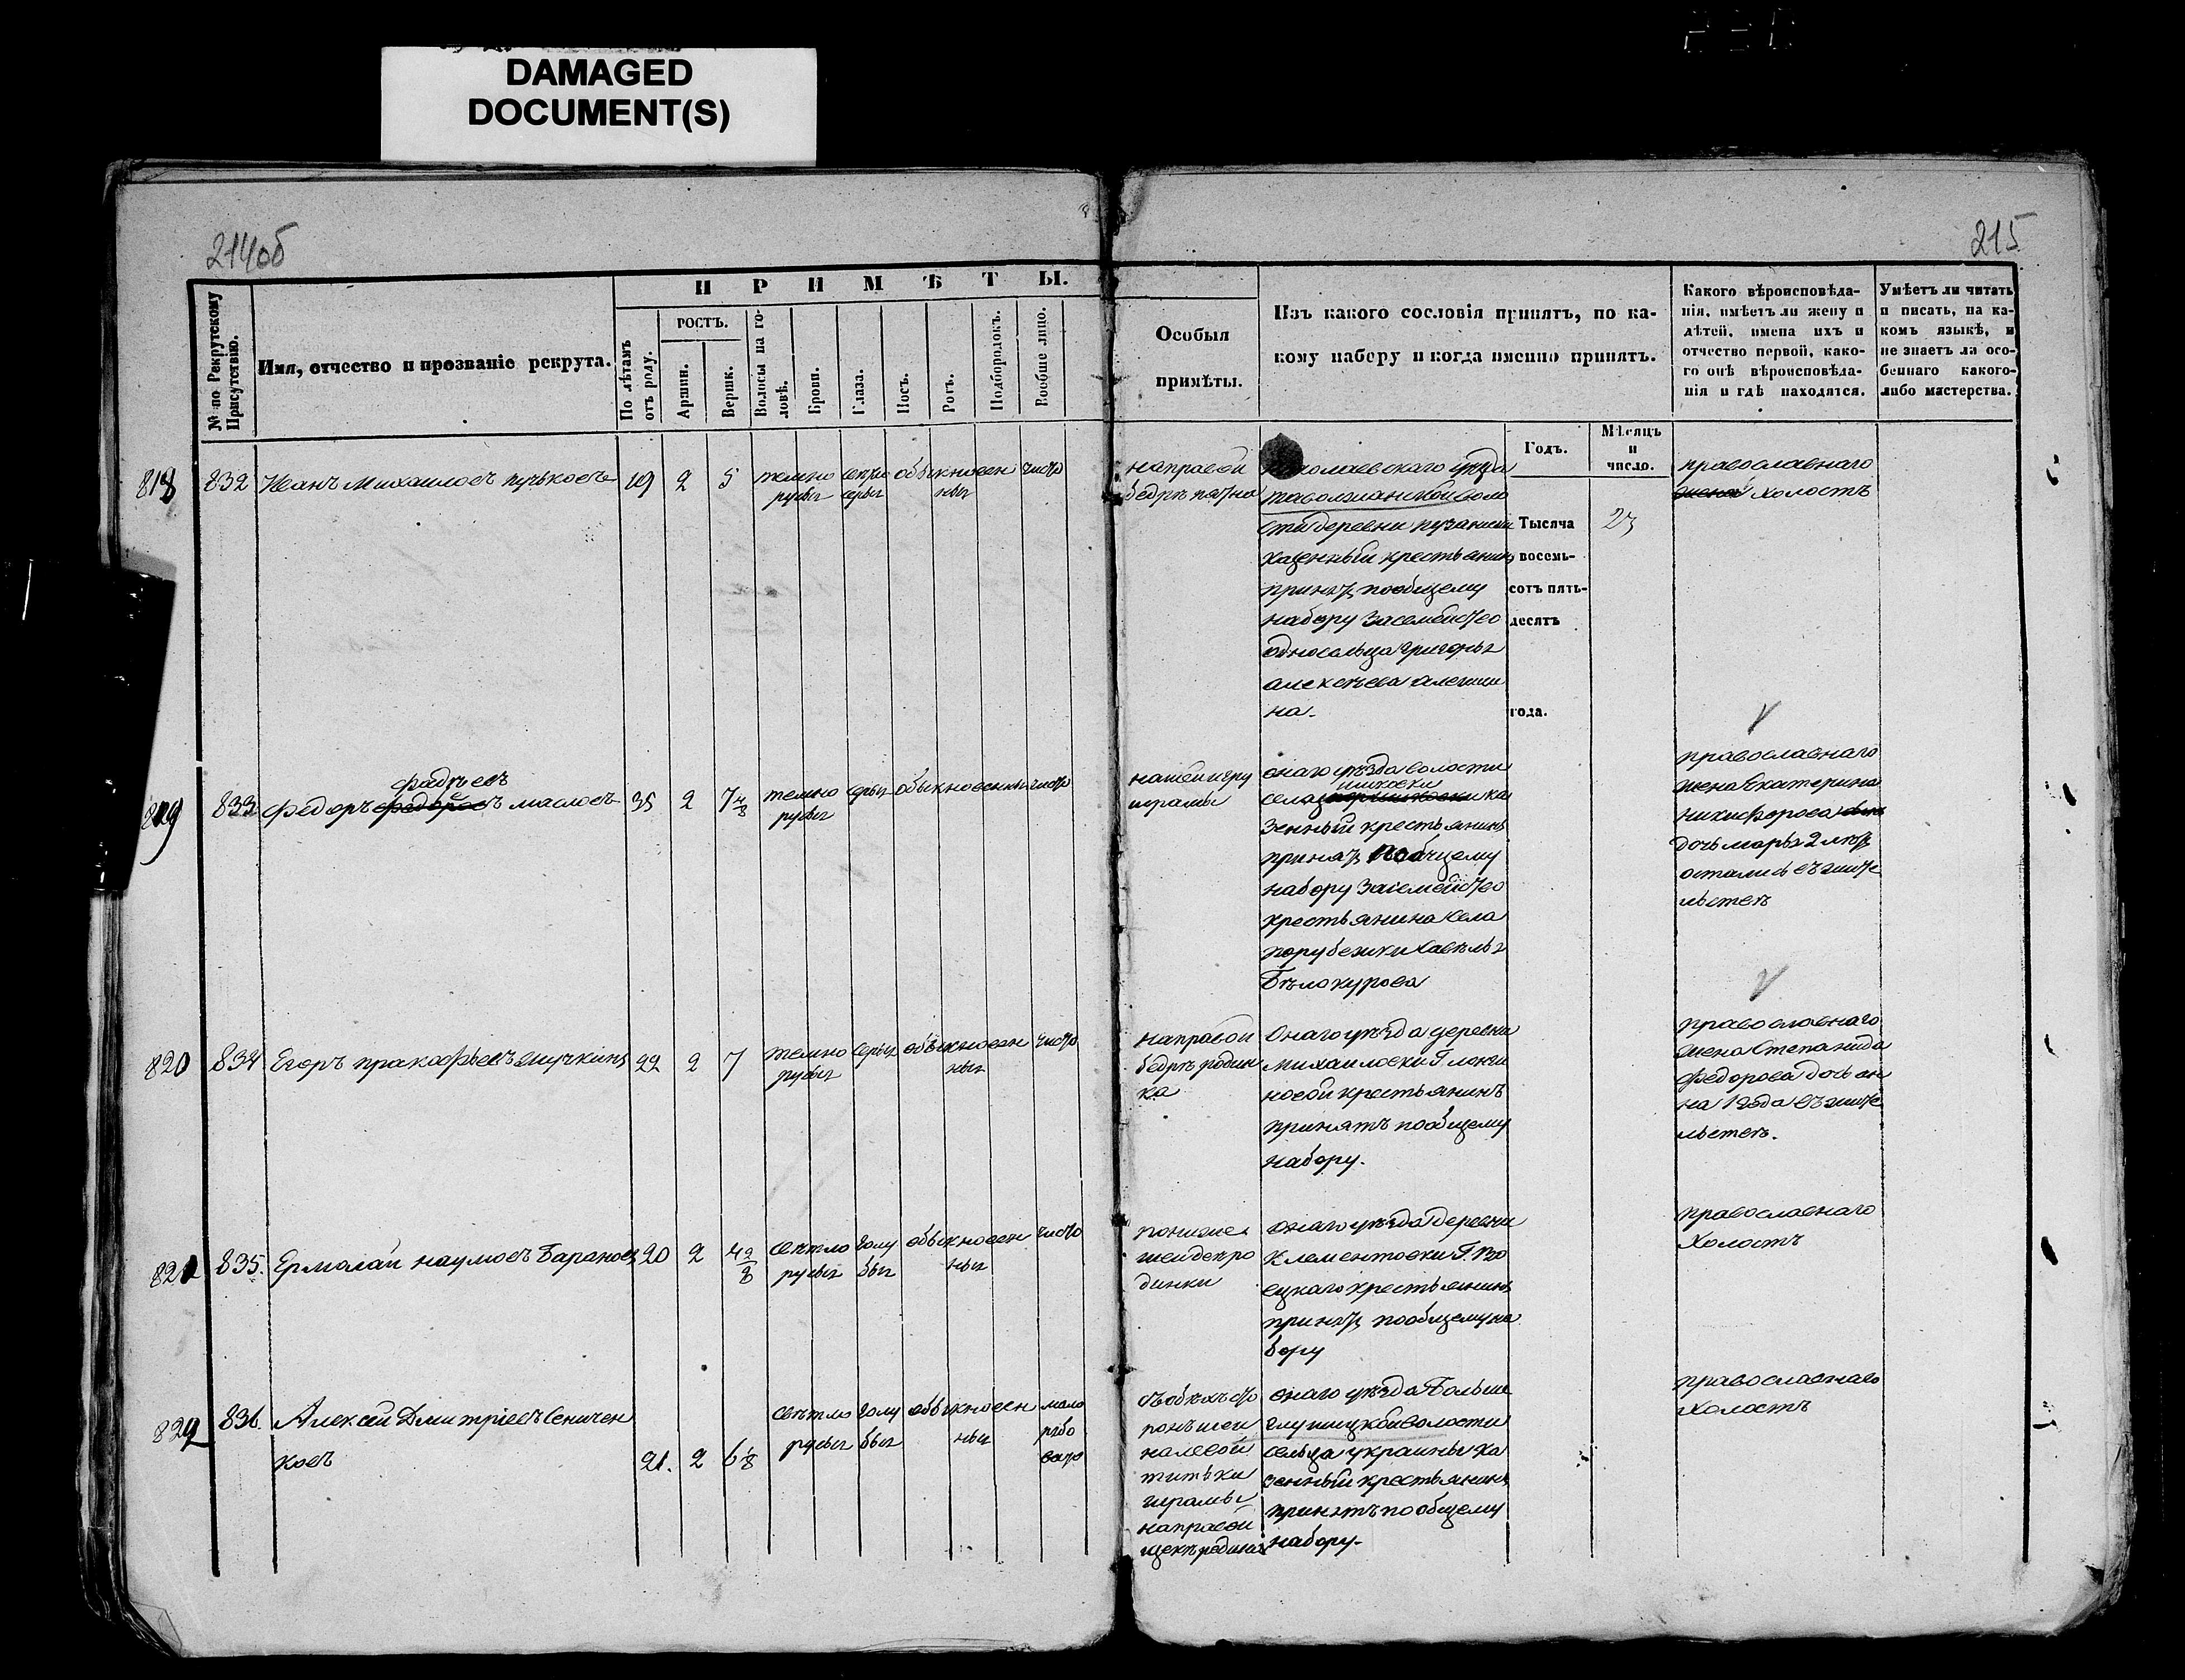 DAMAGED
DOCUMENT(S)
214об
215
№ по Рекрутскому Присутствію.
Имя, отчество и прозваніе рекрута.
ПРИМѢТЫ.
По лѣтамъ отъ роду.
РОСТЪ.
Аршин.
Вершк.
Волосы на головѣ.
Брови.
Глаза.
Носъ.
Ротъ.
Подбородокъ.
Вообще лицо.
Особыя
примѣты.
Изъ какого сословія принятъ, по ка-
кому набору и когда именно принятъ.
Какого вѣроисповѣда-
нія, имѣетъ ли жену и
дѣтей, имена ихъ и
отчество первой, како-
го онѣ вѣроисповѣда-
нія и гдѣ находятся.
Умѣетъ ли читать
и писать, на ка-
комъ языкѣ, и
не знаетъ ла осо-
беннаго какого-
либо мастерства.
Годъ.
Мѣсяцъ
и
число.
Тысяча
восемь-
сотъ пять-
десятъ
года.
23
818
832
Иванъ Михаиловъ пучьковъ
19
2
5
темно
русыя
светло
серыя
обыкновен
ныя
чисто
направой
бедрѣ пятно
николаевскаго уезда
таволжанской воло
сти деревни
казенный крестьянинъ
принятъ пообщему
набору засемейство
односельца григорья
алексѣева алешки
на.
православнаго
холостъ
819
833
фадѣевъ
Федоръ масловъ
35
2
7 4/8
темно
русыя
серыя
обыкновенныя
чисто
нашеи
шрамы
онаго уѣзда волости
села ка
зенный крестьянинъ
принятъ пообчему
набору засемейство
крестьянина села
порубежки савелья
Бѣлокурова
православнаго
жена Екатерина
никифорова
дочь марья 2 лѣтъ
остались въ жите
льствѣ
820
834
Егоръ пракофьевъ мучкинъ
22
2
7
темно
русыя
серыя
обыкновен
ныя
чисто
направой
бедрѣ родин
ка
Онаго уѣзда деревни
михаиловки Г.
новой крестьянинъ
принятъ пообщему
набору.
православнаго
жена Степанида
федорова дочь ан
на 1 года въ жите
льствѣ.
821
835.
Ермолай наумовъ Барановъ
20
2
4 2/8
светло
русыя
голу
быя
обыкновен
ныя
чисто
пониже
шеи две ро
динки
онаго уѣзда деревни
Клементовки Г.
ецкаго крестьянинъ
принятъ пообщему на
бору
православнаго
Холостъ
822
836.
Алексей Дмитріевъ Сеничен
ковъ
21.
2
6 1/8
светло
русыя
голу
быя
обыкновен
ныя
мало
рябо
вато
съобѣихъ сто
ронъ шеи
налевой
титьки
шрамы
направой
щекѣ родинка
онаго уѣзда Больше
глушицкой волости
сельца украины ка
зенный крестьянинъ
принятъ пообщему
набору.
православнаго
холостъ